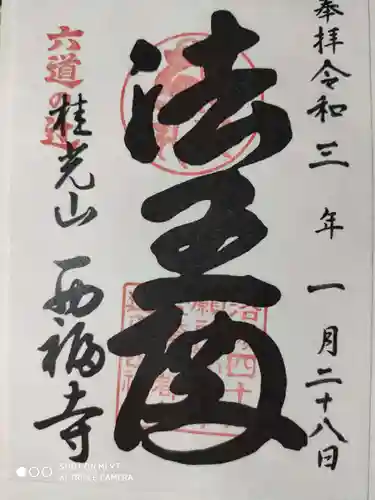 奉拝 令和三年 一月二十八日
法王殿
六道の辻
桂光山 西福寺
SHOT ON MI 9T
AI TRIPLE CAMERA